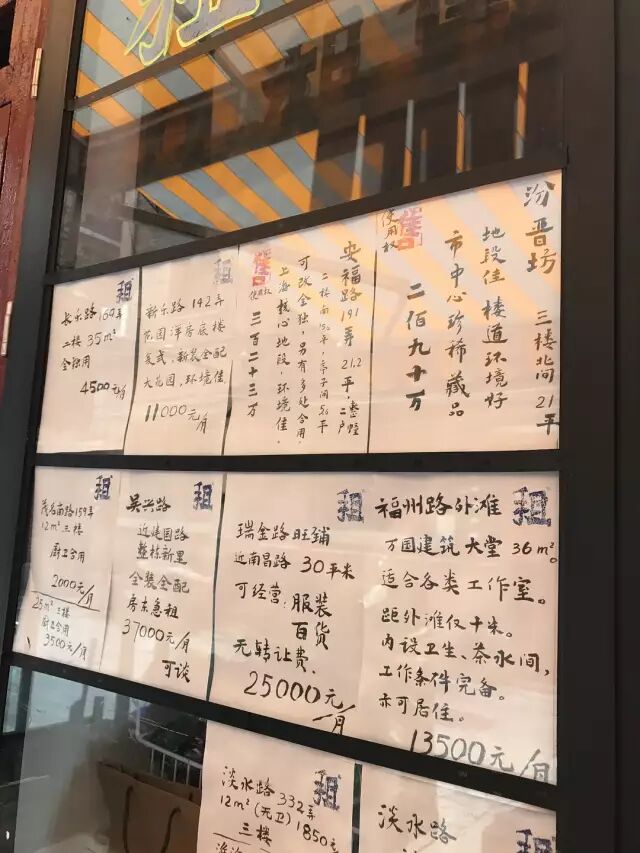 租
长乐路169弄
二楼 35m²
全独用
4500元/月
租
新乐路 142弄
花园洋房底楼
复式,新装全配
大花园,环境佳.
11000元/月
安福路191弄 21.2平,整幢
二户
可改全独,另有多处合用,
上海核心地段,环境佳,
三百二十三万
售
使用权
汾晋坊 三楼北间 21平
地段佳 楼道环境好
市中心珍稀藏品
二佰九十万
售
使用权
租
茂名南路159弄
12m²三楼
厨卫合用
2000元/月
25m²三楼
厨卫合用
3500元/月
租
吴兴路
近建国路
整栋新里
全装全配
房东急租
37000元/月
可谈
租
瑞金路旺铺
近南昌路 30平米
可经营:服装
百货
无转让费.
25000元/月
租
福州路外滩
万国建筑大堂 36m²。
适合各类工作室。
距外滩仅十米。
内设卫生、茶水间,
工作条件完备。
亦可居住。
13500元/月
租
淡水路 332弄
12m²(无卫) 1850元
三楼
租
淡水路